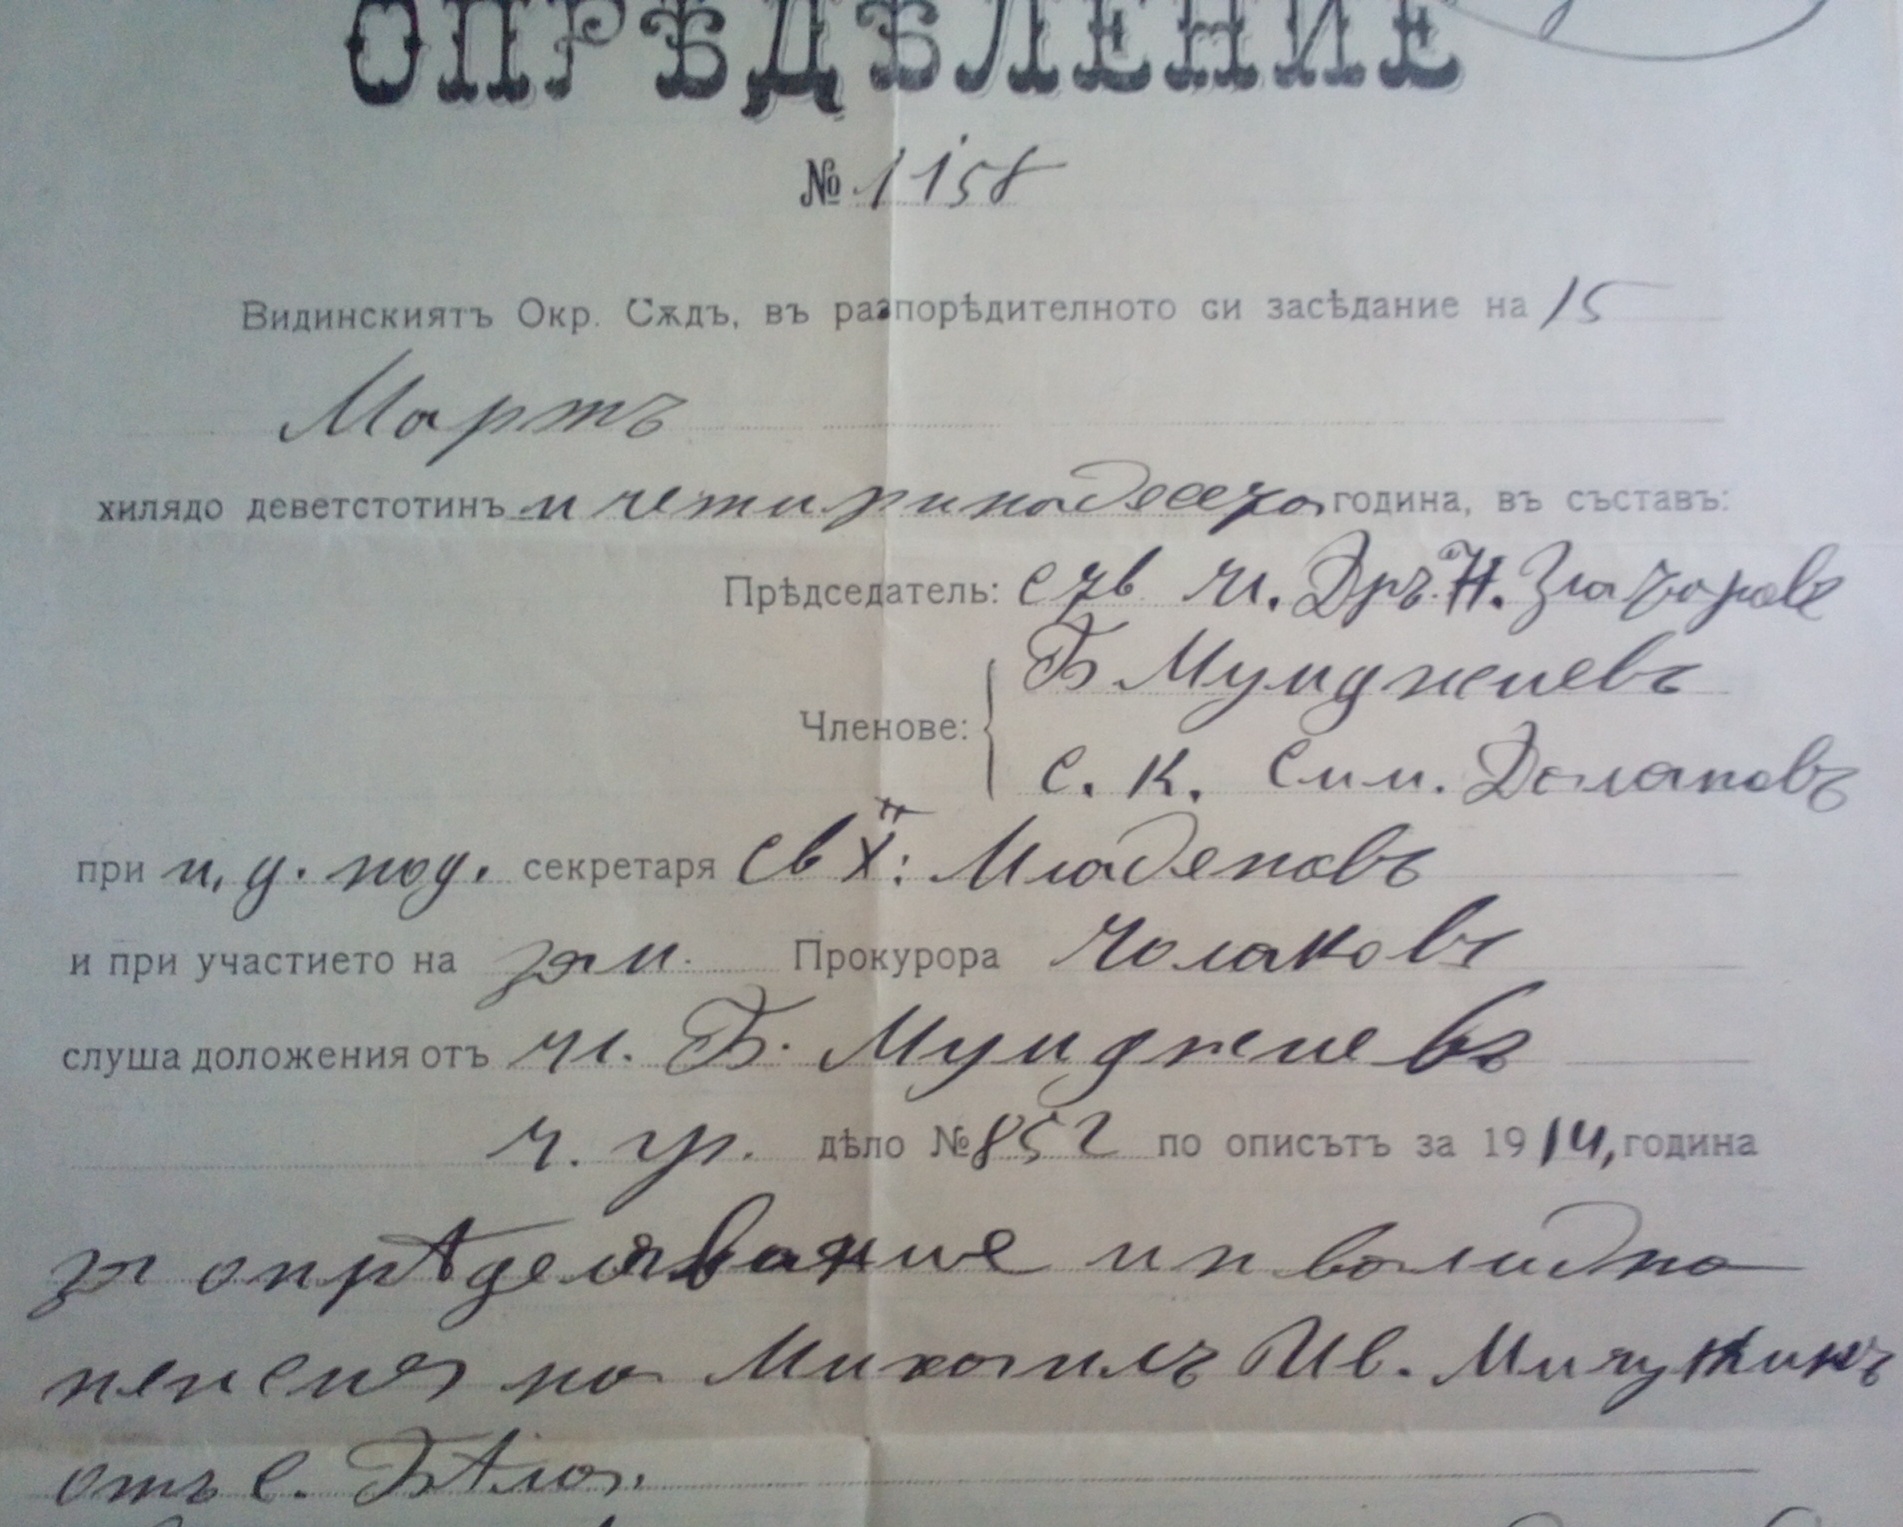 ОПРѢДѢЛЕНИЕ
№ 1158
Видинскиятъ Окр. Сѫдъ, въ разпорѣдителното си засѣдание на 15
Мартъ
хилядо деветстотинъ и четиринадесета година, въ съставъ:
Прѣдседатель: чл. Дръ. Н. Златаровъ
Членове: Б. Мумджиевъ
с. к. Сим. Долаповъ
при и. д. под. секретаря Св Х: Младеновъ
и при участието на зам. Прокурора Чолаковъ
слуша доложения отъ чл. Б. Мумджиевъ
ч. гр. дѣло № 852 по описътъ за 1914, година
за опрѣделявание инвалидна
пенсия на Михаилъ Ив. Мичукинъ
отъ с. Бѣла.